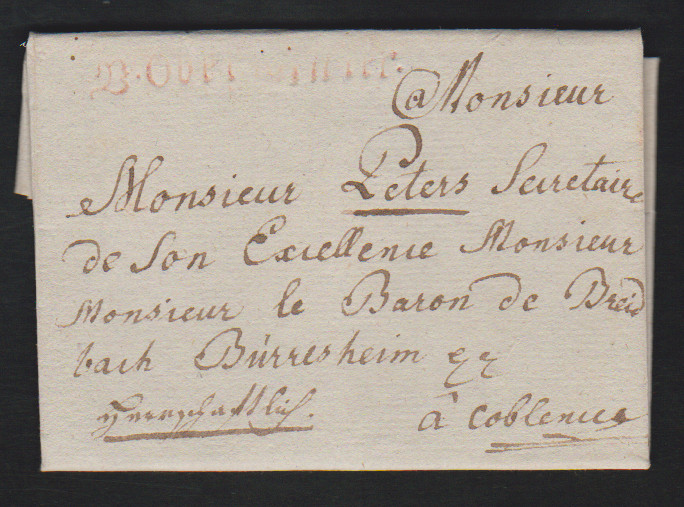 V. Oberwinter.
a Monsieur
Monsieur Peters Secretaire
de Son Excellence Monsieur
Monsieur le Baron de Breid
bach Bürresheim
Herrschaftlich.
à Coblence